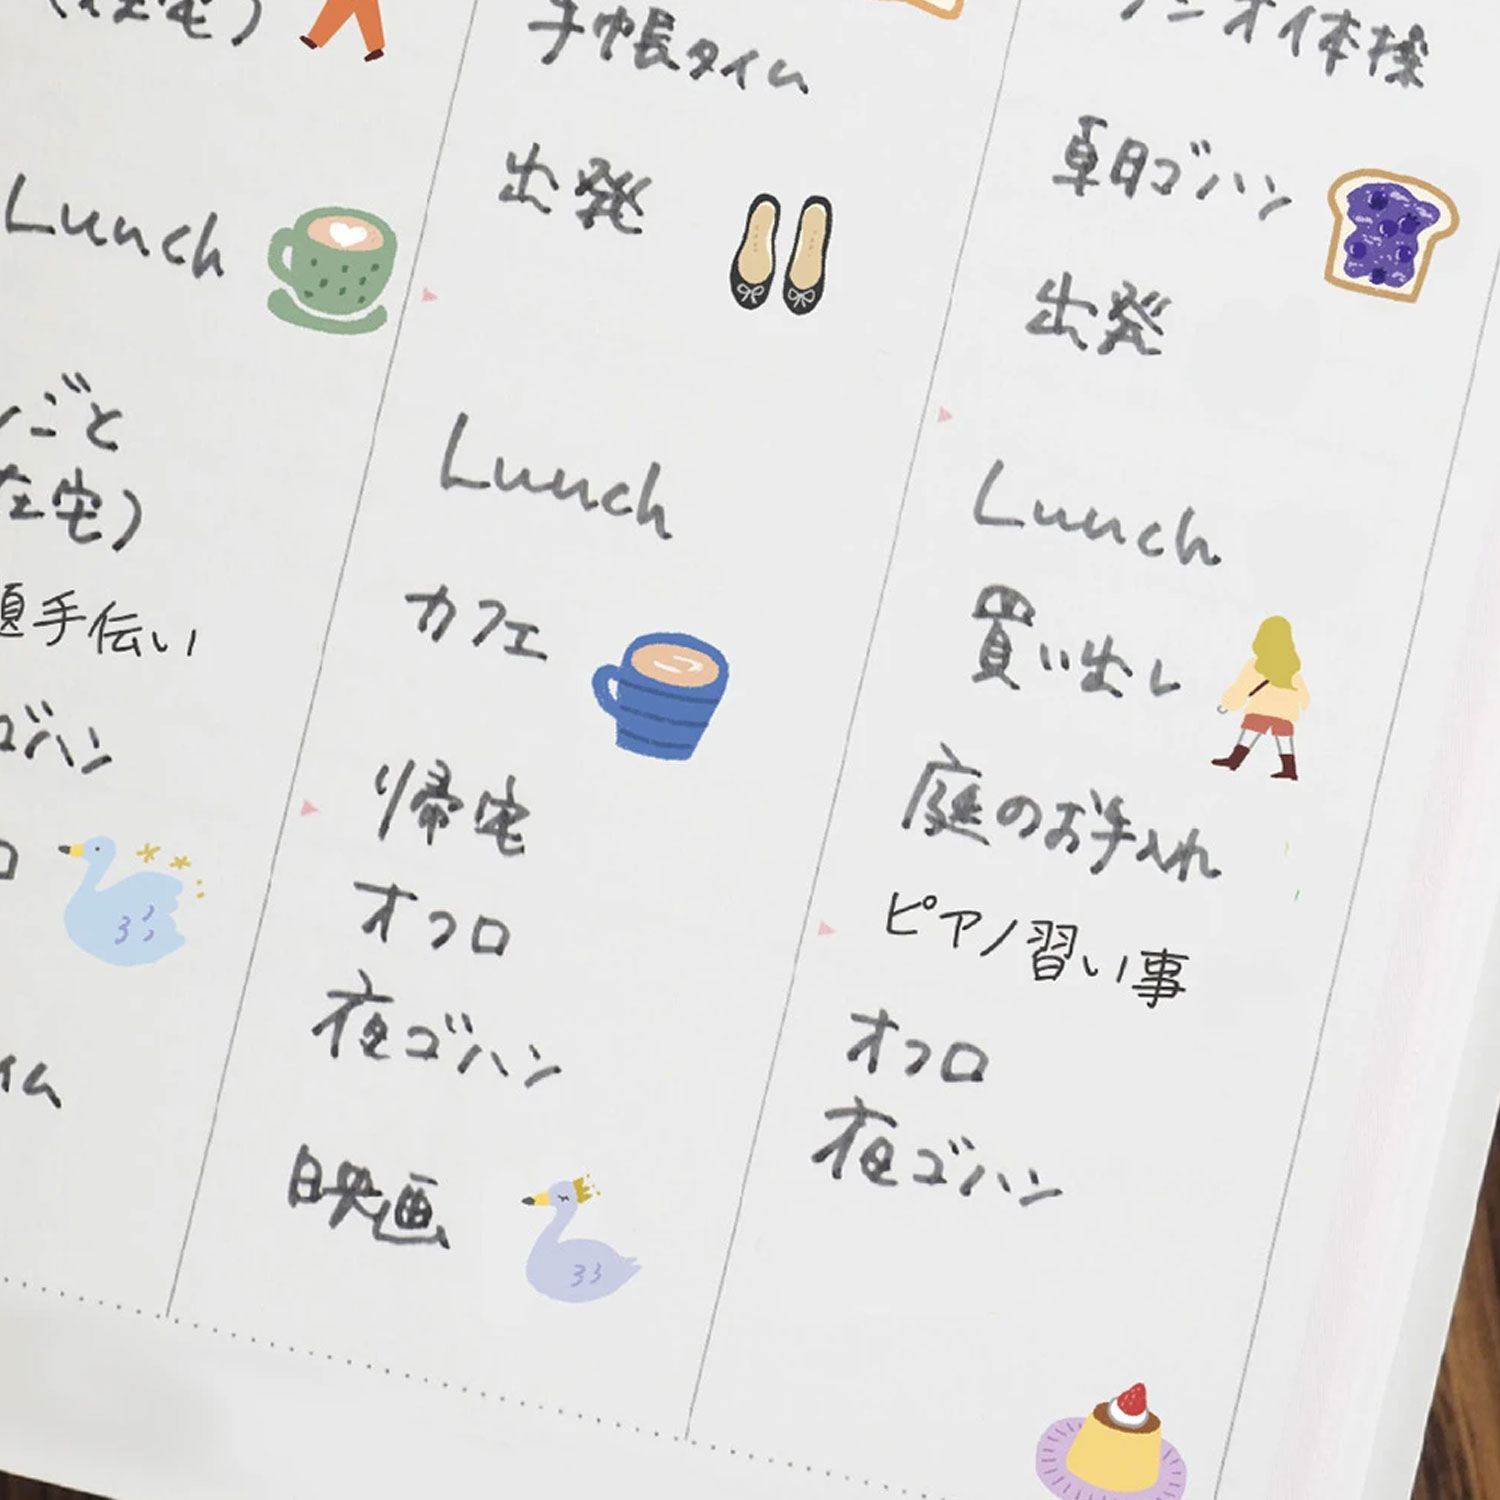 在宅)
Lunch
ごと
在宅)
題手伝い
ゴハン
ロ
イム
手帳タイム
出発
Lunch
カフェ
帰宅
オフロ
夜ゴハン
映画
ラジオ体操
朝ゴハン
出発
Lunch
買い出し
庭のお手入れ
ピアノ習い事
オフロ
夜ゴハン